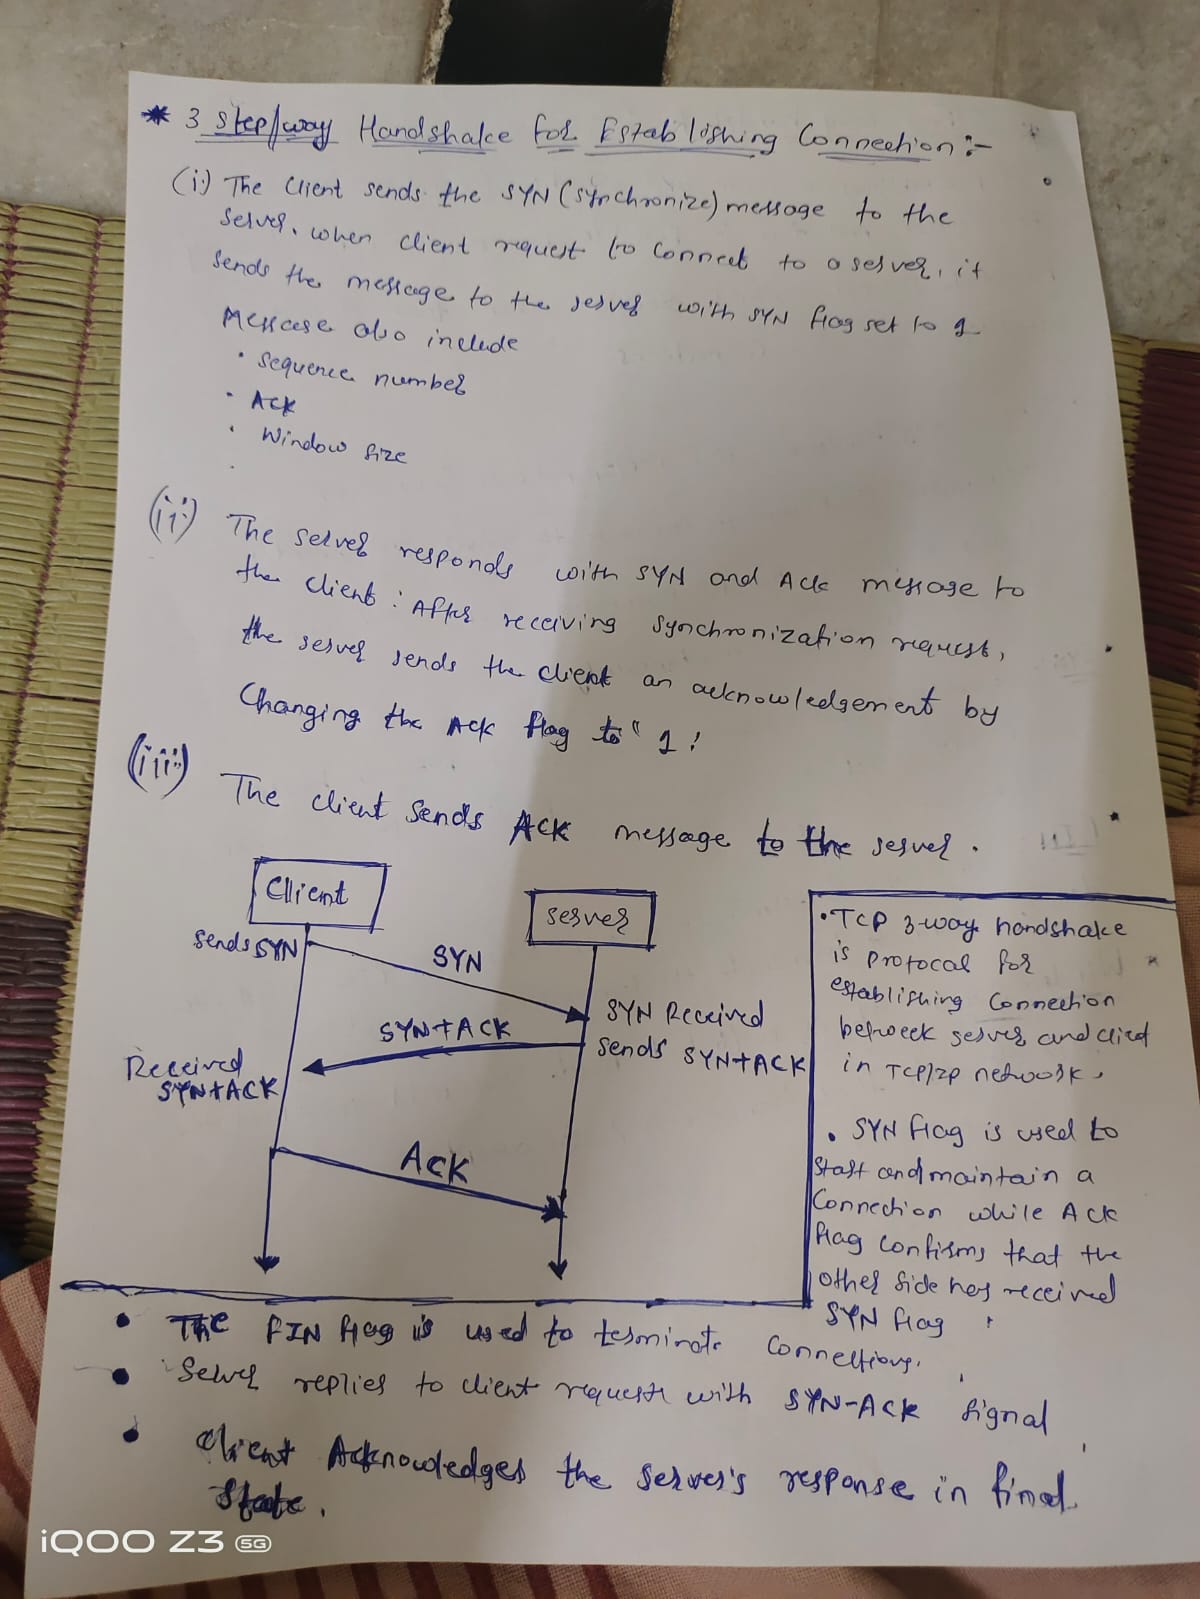 * 3 Step/way Handshake for Establishing Connection :-
(i.) The Client sends the SYN (synchronize) message to the
server. when client request to connect to a server, it
sends the message to the server with SYN flag set to 1
Message also include
• Sequence number
• Ack
• Window size
(ii) The server responds with SYN and Ack message to
the client : After receiving synchronization request,
the server sends the client an acknowledgement by
Changing the Ack flag to "1!
(iii) The client sends ACK message to the server.
Client
server
sends SYN
SYN
SYN Received
SYN+ACK
sends SYN+ACK
Received
SYN+ACK
ACK
• TCP 3-way handshake
is protocal for
establishing Connection
betweek server and clied
in TCP/IP network.
• SYN flag is used to
start and maintain a
Connection while ACK
flag confirms that the
other side has received
SYN flag
• The FIN flag is used to terminate connections.
• Server replies to client request with SYN-ACK signal
• Client Acknowledges the server's response in final
state.
iQOO Z3 5G